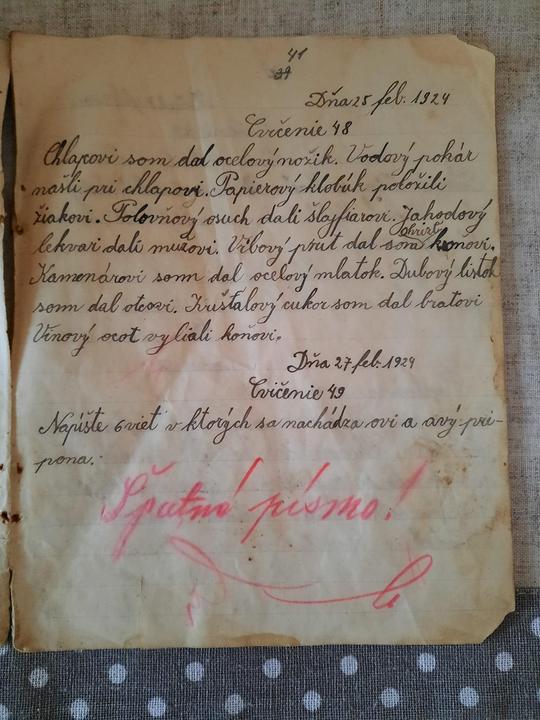 41
39
Dňa 25 feb. 1924
Cvičenie 48
Chlapovi som dal ocelový nožik. Vodový pohár
našli pri chlapovi. Papierový klobúk položili
žiakovi. Polovňový osuch dali šlajfiarovi. Jahodový
lekvar dali mužovi. Vŕbový prút dal som konovi.
Kamenárovi somm dal ocelový mlatok. Dubový listok
somm dal otcovi. Krištalový cukor som dal bratovi
Vinový ocot vyliali koňovi.
Dňa 27 feb. 1924
Cvičenie 49
Napíšte 6 viet v ktorých sa nachádza ovi a avý pri-
pona.
Špatné písmo!